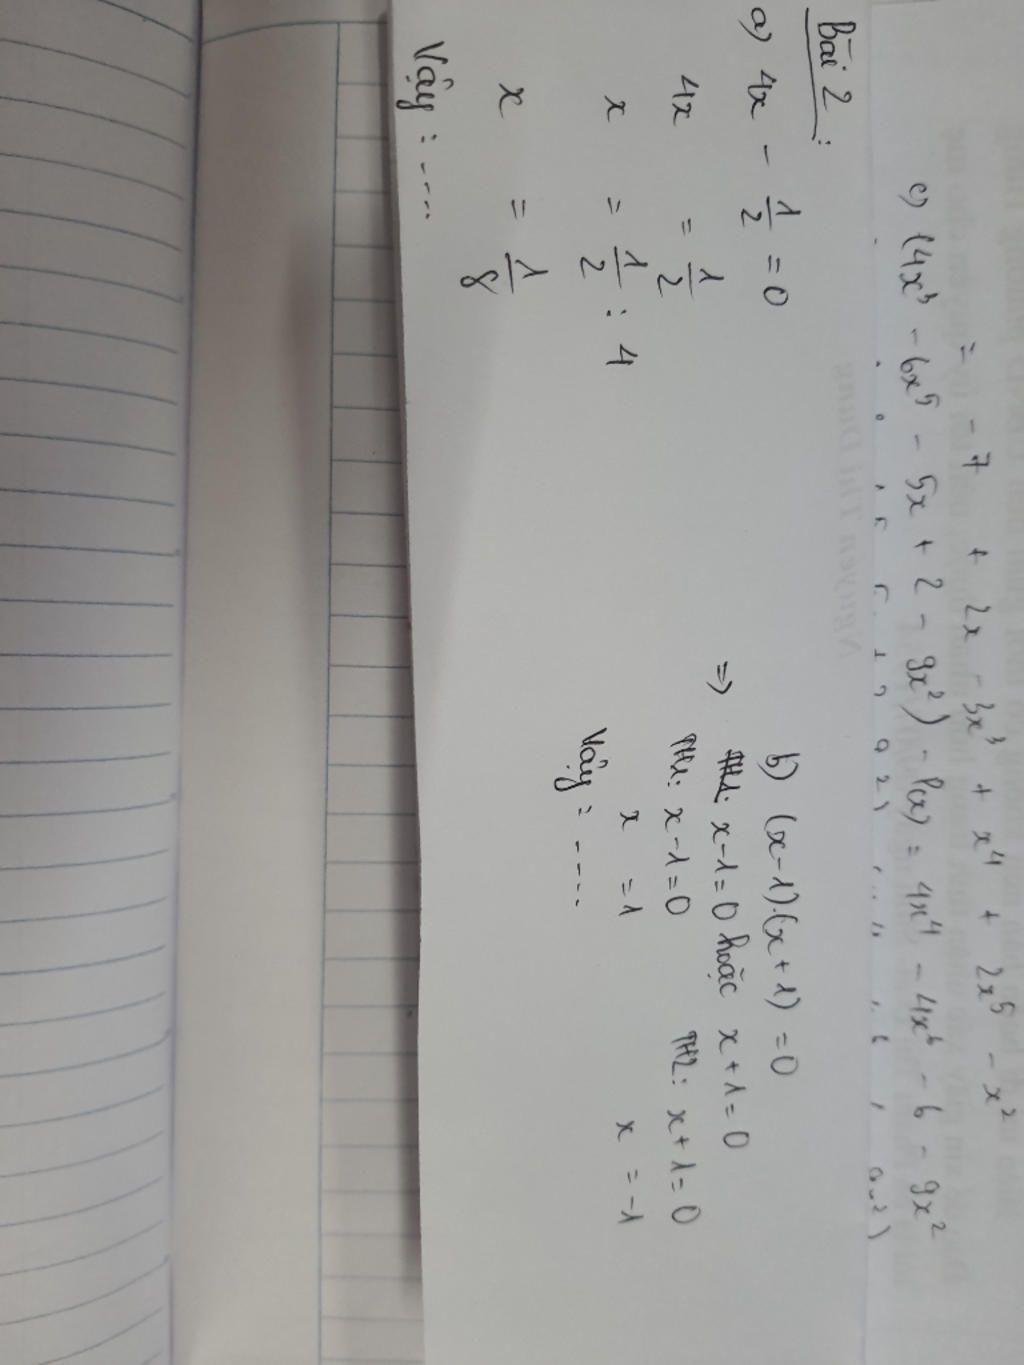 = - 7 + 2x - 3x³ + x⁴ + 2x⁵ - x²
c) (4x³ - 6x⁵ - 5x + 2 - 9x²) - P(x) = 4x⁴ - 4x⁶ - 6 - 9x²
Bài 2 :
a) 4x - 1/2 = 0
4x = 1/2
x = 1/2 : 4
x = 1/8
Vậy : ....
b) (x-1).(x+1) = 0
=> x-1=0 hoặc x+1=0
TH1: x-1=0 TH2: x+1=0
x =1 x = -1
Vậy : ....